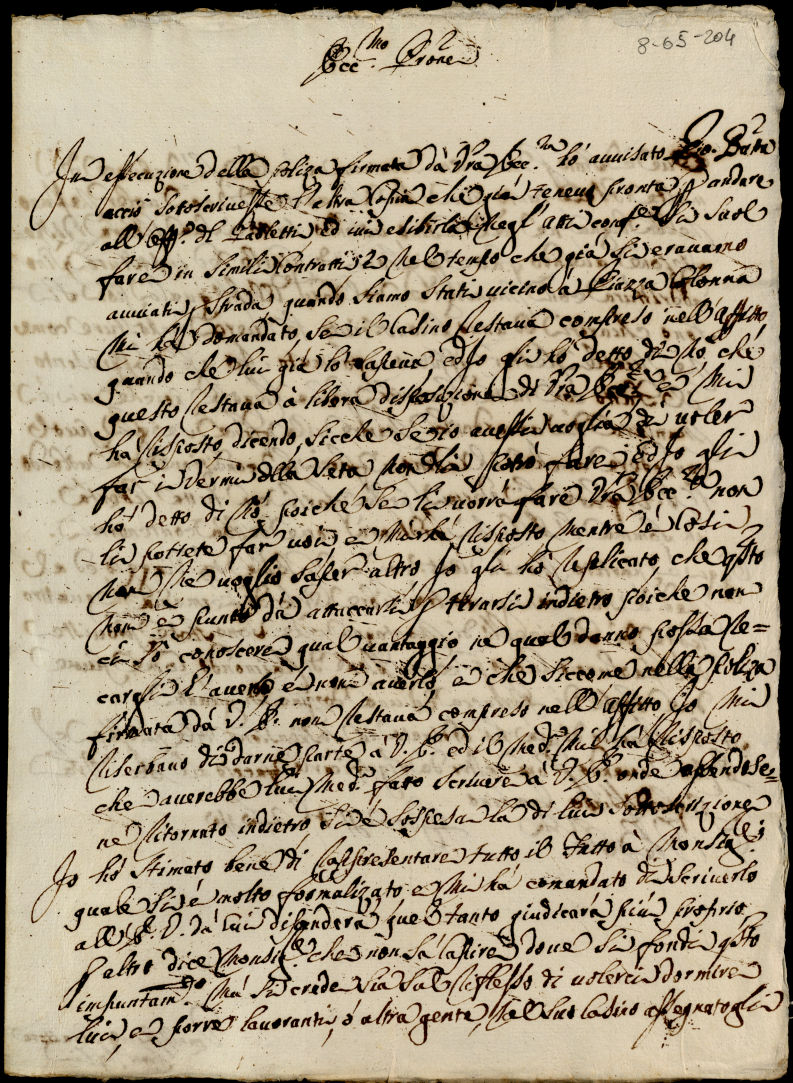 8-65-204
Ecc.mo Prone
In essecuzione della poliza firmata dà Vra Ecc.za hò auuisato Gio. Batta
acciò sotoscriuesse l'altra Copia che già teneuo pronta p andare
all' Off.o del Paoletti ed iui esibirla negl' atti conf.e si suol
fare in simili Contratti e nel tempo che già si erauamo
auuiati p strada quando siamo stati uicino à Piazza Colonna
mi hà domandato, se il Casino restaua compreso nell' affitto
quando che lui già lo sapeua, ed Io gli hò detto di nò, che
questo restaua à libera disposizione di Vra Ecc.za e mi
hà risposto dicendo, sicche se io auessi uoglia di uoler
far i Vermi della seta non li potrò fare, ed Io gli
hò detto di nò, poiche se li uorrà fare Vra Ecc.za non
li pottete far uoi e mi hà risposto mentre è Cosi
non ne uoglio saper altro Io gli hò replicato, che qsto
non è punto dà attaccarsi p tirarsi indietro poiche non
ci sò conoscere qual uantaggio ne qual danno possa re=
cargli l'auerlo è non auerlo, e che siccome nella poliza
firmata dà V. E. non restaua compreso nell' affitto Io mi
riserbauo di darne parte à V. E. ed il med.o mi hà risposto
che auerebbe lui med.o fato scriuere à V. E. onde essendose=
ne ritornato indietro si è sospesa la di lui sottoscrizione
Io hò stimato bene di rappresentare tutto il fatto à Monsig.e
quale si è molto formalizato e mi hà comandato di scriuerlo
all' E. V. dà cui dipenderà quel tanto giudicarà più proprio
p altro dice Monsig.e che non sà capire doue si fondi qsto
impuntam.to mà si crede sia sul riflesso di uolerci dormire
lui, e porre lauoranti, ò altra gente, nel suo Casino assegnatogli